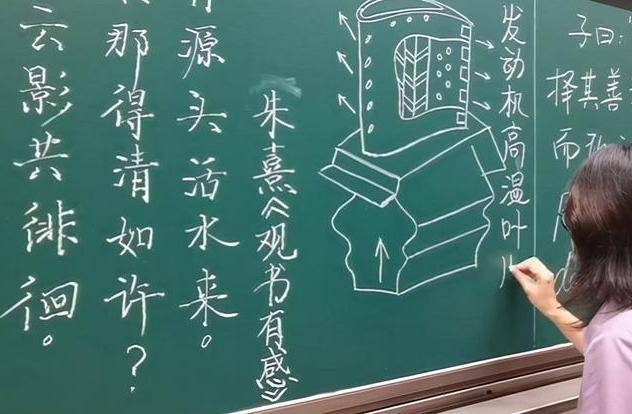 云影共徘徊。
那得清如许?
源头活水来。
朱熹《观书有感》
发动机高温叶
子曰:“
择其善
而